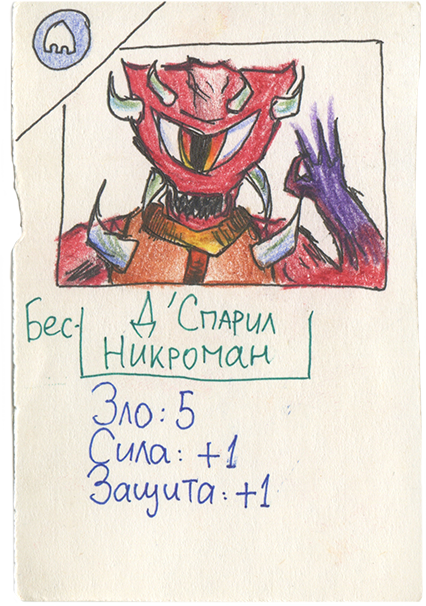 Бес-
Д'Спарил
Никроман
Зло: 5
Сила: +1
Защита: +1